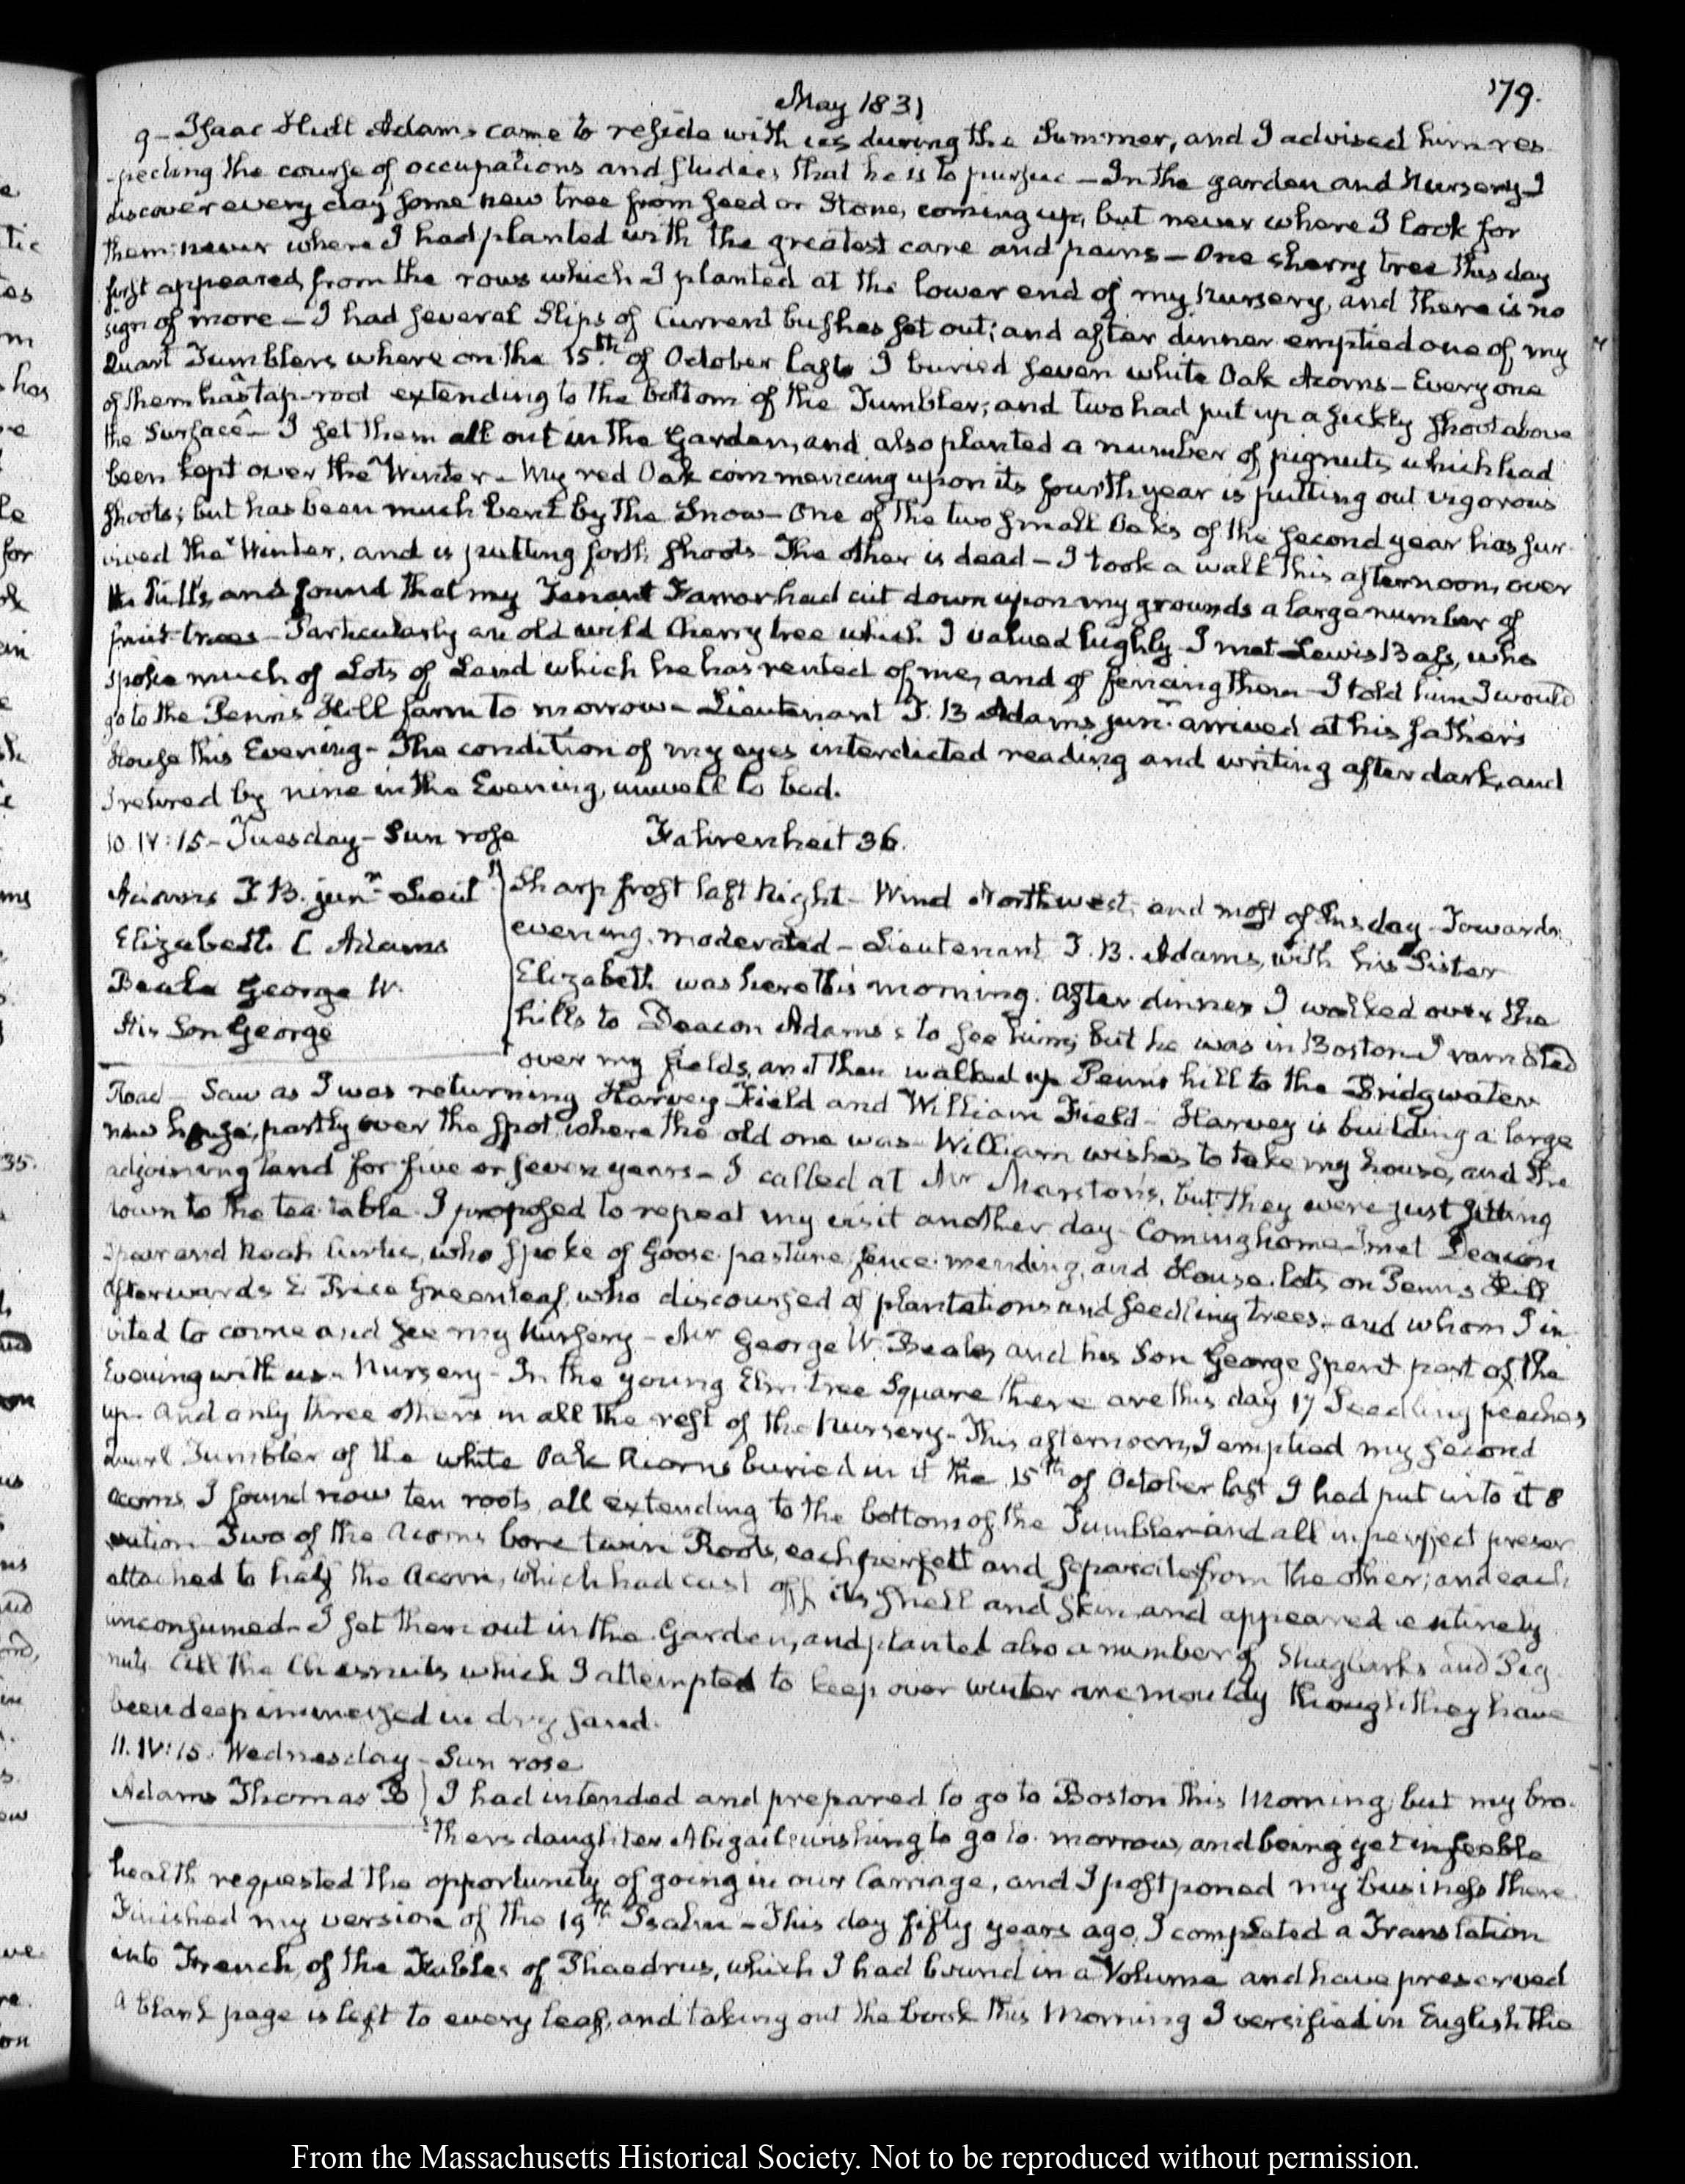 May 1831
179.
9 – Isaac Hull Adams came to reside with us during the Summer, and I advised him res-
-pecting the course of occupations and studies that he is to pursue – In the garden and Nursery I
discover every day some new tree from seed or Stone, coming up, but never where I look for
them; never where I had planted with the greatest care and pains – One cherry tree this day
first appeared from the rows which I planted at the lower end of my Nursery, and there is no
sign of more – I had several Slips of Currant bushes set out; and after dinner emptied one of my
Quart Tumblers where on the 15th. of October last I buried seven white Oak Acorns – Every one
of them has a tap-root extending to the bottom of the Tumbler; and two had put up a sickly shoot above
the Surface – I set them all out in the Garden, and also planted a number of pignuts which had
been kept over the Winter – My red Oak commencing upon its fourth year is putting out vigorous
shoots; but has been much bent by the Snow – One of the two small Oaks of the second year has sur-
vived the Winter, and is putting forth shoots – The other is dead – I took a walk this afternoon, over
the hills, and found that my Tenant Farrar had cut down upon my grounds a large number of
fruit-trees – Particularly an old wild Cherry tree which I valued highly – I met Lewis Bass, who
spoke much of Lots of Land which he has rented of me, and of fencing them – I told him I would
go to the Penn's Hill farm to morrow – Lieutenant J. B Adams junr. arrived at his father's
House this Evening – The condition of my eyes interdicted reading and writing after dark, and
I retired by nine in the Evening, unwell to bed.
10. IV:15 – Tuesday – Sun rose Fahrenheit 36.
Adams J B. junr. Lieut
Elizabeth C Adams
Beale George W.
His Son George
Sharp frost last Night – Wind Northwest, and most of this day – Towards
evening, moderated – Lieutenant J. B. Adams, with his Sister
Elizabeth was here this morning. After dinner I walked over the
hills to Deacon Adams's to see him; but he was in Boston – I rambled
over my fields, and then walked up Penns hill to the Bridgwater
Road – Saw as I was returning Harvey Field and William Field – Harvey is building a large
new house, partly over the spot where the old one was – William wishes to take my house, and the
adjoining land for five or seven years – I called at Mr Marston's, but they were just sitting
down to the tea-table. I proposed to repeat my visit another day – Coming home I met Deacon
Spear and Noah Curtis, who spoke of Goose pasture fence mending, and House-lots on Penn's Hill
Afterwards E. Price Greenleaf, who discoursed of plantations and seedling trees – and whom I in-
vited to come and see my Nursery – Mr George W. Beale, and his Son George spent part of the
Evening with us – Nursery – In the young Elm tree Square there are this day 17 Seedling peaches
up – And only three others in all the rest of the Nursery – This afternoon, I emptied my second
Quart Tumbler of the white Oak Acorns buried in it the 15th of October last I had put into it 8
acorns, I found now ten roots all extending to the bottom of the Tumbler and all in perfect preser-
vation – Two of the Acorns bore twin Roots, each perfect and separate from the other; and each
attached to half the Acorn, which had cast off its shell and skin and appeared entirely
unconsumed – I set them out in the Garden, and planted also a number of Shagbarks and Pig
nuts. All the Chesnuts which I attempted to keep over winter are mouldy though they have
been deep immersed in dry sand.
11. IV:15. Wednesday – Sun rose
Adams Thomas B
I had intended and prepared to go to Boston this Morning; but my bro-
ther's daughter Abigail wishing to go to-morrow, and being yet in feeble
health requested the opportunity of going in our Carriage, and I postponed my business there
Finished my version of the 19th Psalm – This day fifty years ago, I completed a Translation
into French, of the Fables of Phaedrus, which I had bound in a Volume and have preserved
A blank page is left to every leaf, and taking out the book this Morning I versified in English the
From the Massachusetts Historical Society. Not to be reproduced without permission.